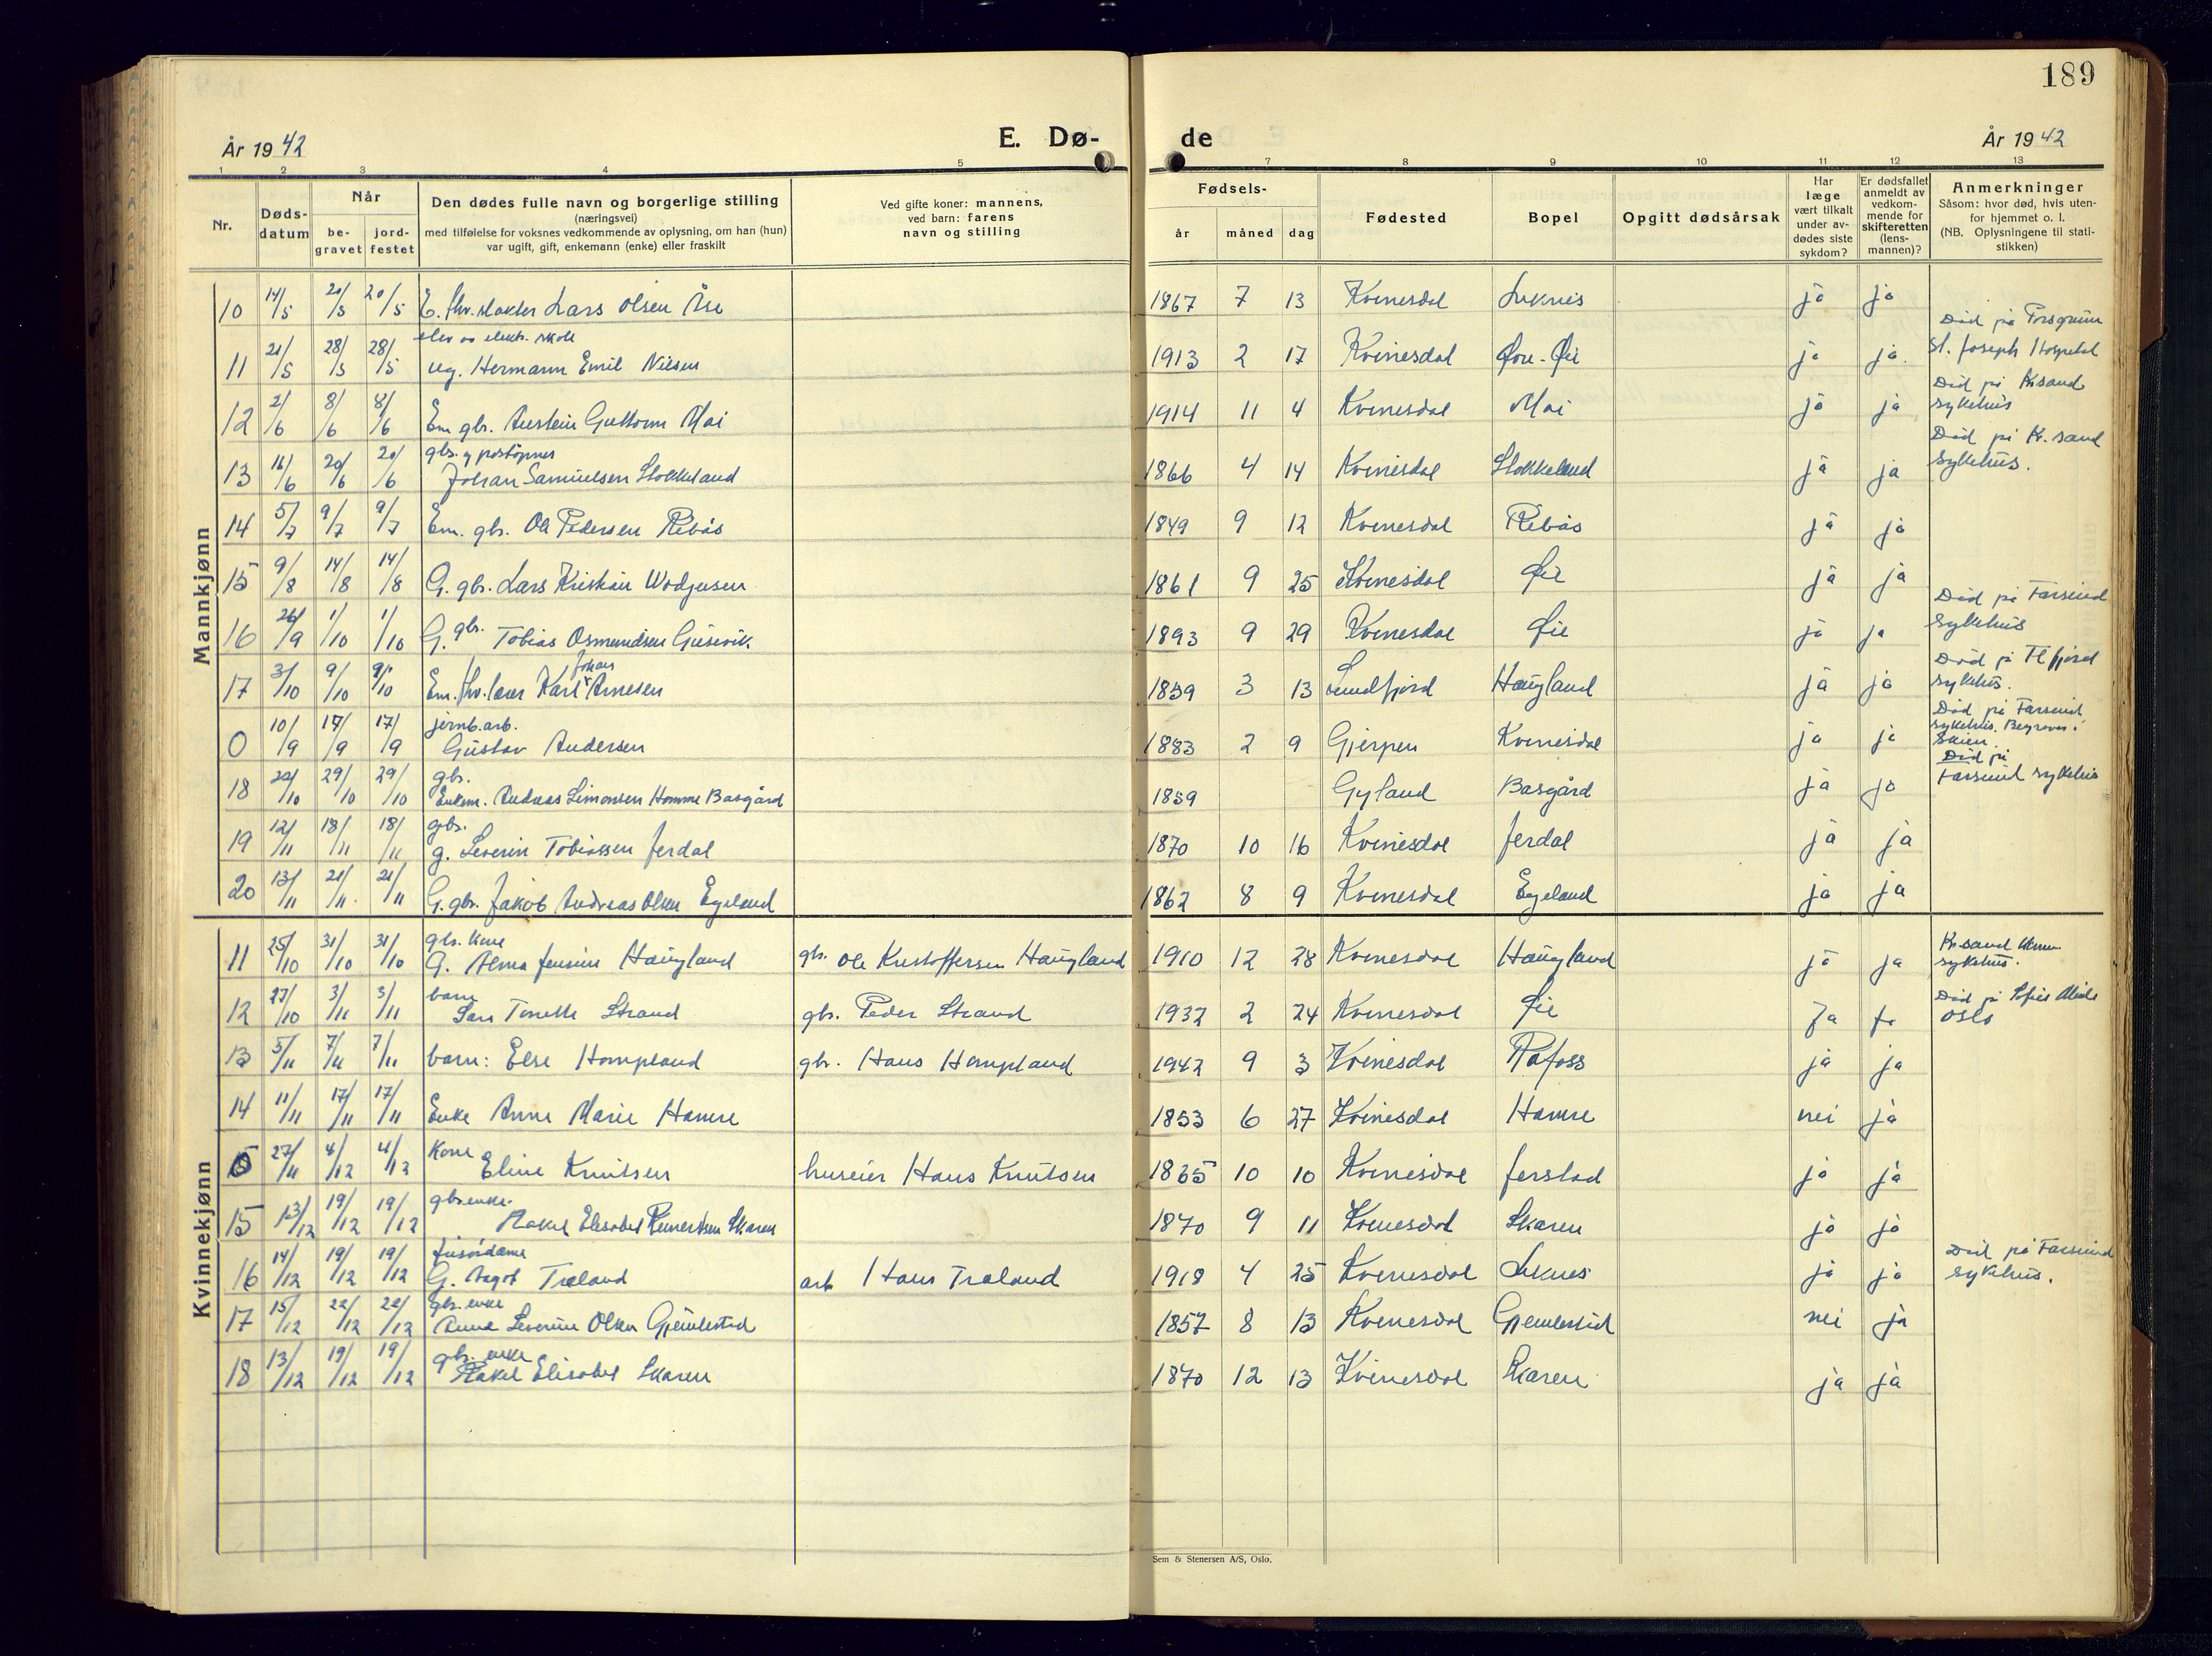 189
År 1942
E. Dø-
de
År 1942
1 2 3 4 5 7 8 9 10 11 12 13
Nr.
Døds-
datum
Når
be-
gravet
jord-
festet
Den dødes fulle navn og borgerlige stilling
(næringsvei)
med tilføielse for voksnes vedkommende av oplysning, om han (hun)
var ugift, gift, enkemann (enke) eller fraskilt
Ved gifte koner: mannens,
ved barn: farens
navn og stilling
Fødsels-
år måned dag
Fødested
Bopel
Opgitt dødsårsak
Har
læge
vært tilkalt
under av-
dødes siste
sykdom?
Er dødsfallet
anmeldt av
vedkom-
mende for
skifteretten
(lens-
mannen)?
Anmerkninger
Såsom: hvor død, hvis uten-
for hjemmet o. l.
(NB. Oplysningene til stati-
stikken)
Mannkjønn
10 14/5 20/5 20/5 E. fhv. Lars Olsen Åse 1867 7 13 Kvinesdal Liknes ja ja
11 21/5 28/5 28/5 elev av elektr. skole
ug. Hermann Emil Nilsen 1913 2 17 Kvinesdal Øvre-Øie ja ja Død på Porsgrunn
St. Joseph Hospital
12 2/6 8/6 8/6 Em gbr. Austein Guttorm Moi 1914 11 4 Kvinesdal Moi ja ja Død på Kr.sand
sykehus
13 16/6 20/6 20/6 gbr. og postopner
Johan Samuelsen Stokkeland 1866 4 14 Kvinesdal Stokkeland ja ja Død på Kr.sand
sykehus.
14 5/7 9/7 9/7 Em. gbr. Ole Pedersen Rebås 1849 9 12 Kvinesdal Rebås ja ja
15 9/8 14/8 14/8 G. gbr. Lars Kristian Wodjesen 1861 9 25 Kvinesdal Øie ja ja
16 26/9 1/10 1/10 G. gbr. Tobias Osmundsen Gusevik 1893 9 29 Kvinesdal Øie ja ja Død på Farsund
sykehus
17 3/10 9/10 9/10 Em. fhv. lærer Karl Johan Arnesen 1859 3 13 Sundfjord Haugland ja ja Død på Fl.fjord
sykehus.
0 10/9 17/9 17/9 jernb.arb.
Gustav Andersen 1883 2 9 Gjerpen Kvinesdal ja ja Død på Farsund
sykehus. Begravet i
Skien
18 22/10 29/10 29/10 gbr.
Enkem. Andreas Simonsen Homme Basgård 1859 Gyland Basgård ja ja Død på
Farsund sykehus
19 12/11 18/11 18/11 gbr.
g. Severin Tobiassen Jerdal 1870 10 16 Kvinesdal Jerdal ja ja
20 13/11 21/11 21/11 G. gbr. Jakob Andreas Olsen Egeland 1862 8 9 Kvinesdal Egeland ja ja
Kvinnekjønn
11 25/10 31/10 31/10 gbr. kone
G. Alma Jensine Haugland gbr. Ole Kristoffersen Haugland 1910 12 28 Kvinesdal Haugland ja ja Kr.sand
sykehus.
12 27/10 3/11 3/11 barn
Sara Tonette Strand gbr. Peder Strand 1932 2 24 Kvinesdal Øie ja ja Død på
Oslo
13 5/11 7/11 7/11 barn: Else Hompland gbr. Hans Hompland 1942 9 3 Kvinesdal Rafoss ja ja
14 11/11 17/11 17/11 Enke Anne Marie Hamre 1853 6 27 Kvinesdal Hamre nei ja
0 27/11 4/12 4/12 Kone
Eline Knutsen huseier Hans Knutsen 1865 10 10 Kvinesdal Jerstad ja ja
15 13/12 19/12 19/12 gbr.enke.
Rakel Elisabet Reinertsen Skaren 1870 9 11 Kvinesdal Skaren ja ja
16 14/12 19/12 19/12 frisørdame
G. Aagot Træland arb Hans Træland 1918 4 25 Kvinesdal Liknes ja ja Død på Farsund
sykehus.
17 15/12 22/12 22/12 gbr. enke
Anna Severine Olsen Gjemlestad 1857 8 13 Kvinesdal Gjemlestad nei ja
18 13/12 19/12 19/12 gbr. enke
Rakel Elisabet Skaren 1870 12 13 Kvinesdal Skaren ja ja
Sem & Stenersen A/S, Oslo.